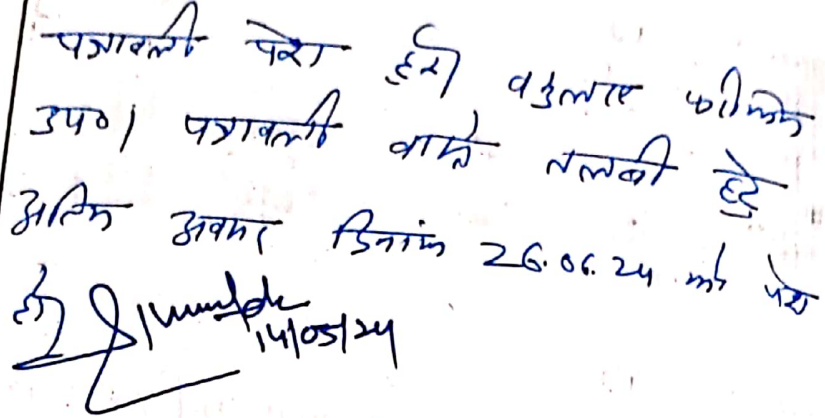 पत्रावली पेश हुई वकुलाए फरीकेन
उप०। पत्रावली वास्ते तलबी हेतु
अन्तिम अवसर दिनांक 26.06.24 को पेश
हो।
14/05/24